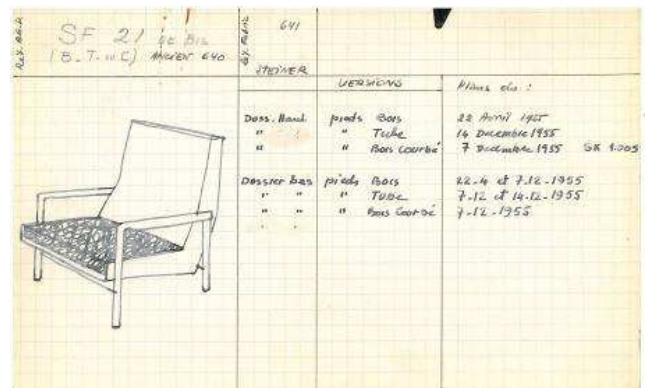 Réf. A.R.P. SF 21 et Bis
(B.T. ou C) ANCIEN 640
Réf. Fabric 641
STEINER
VERSIONS Plans du :
Doss. Haut pieds Bois 22 Avril 1955
" " " Tube 14 Décembre 1955
" " Bois courbé 7 Décembre 1955 SK 1.005
Dossier bas pieds Bois 22-4 et 7.12-1955
" " " TUBE 7-12 et 14-12-1955
" " " Bois Courbé 7-12-1955
" "